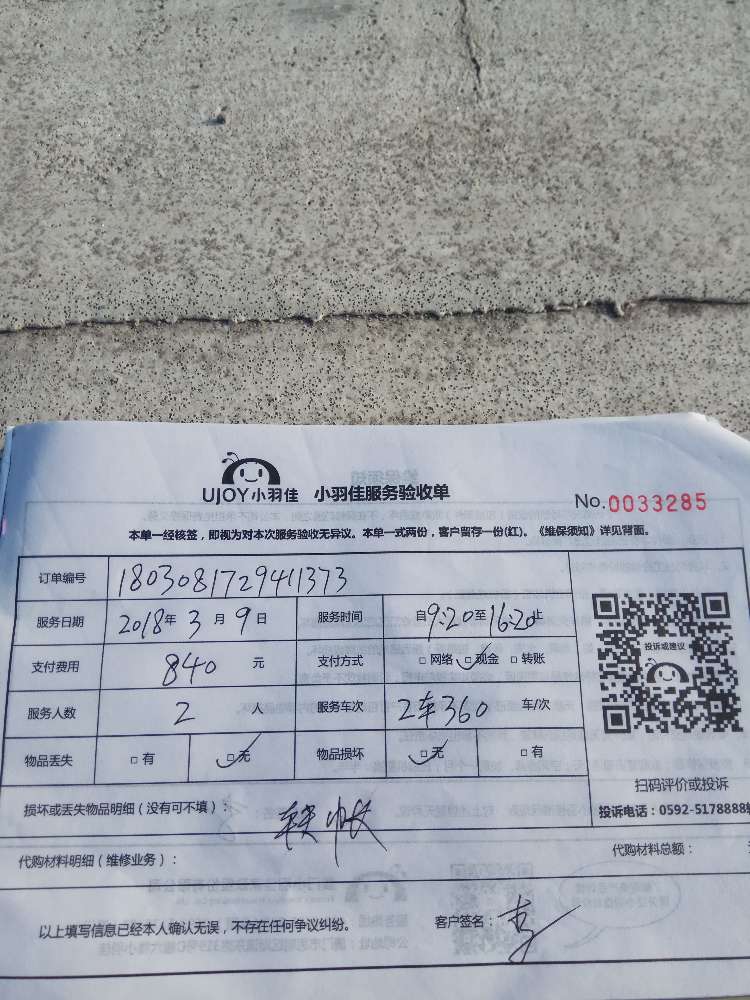 UJOY小羽佳 小羽佳服务验收单
No.0033285
本单一经核签，即视为对本次服务验收无异议。本单一式两份，客户留存一份(红)。《维保须知》详见背面。
订单编号 1803081729411373
服务日期 2018年 3 月 9 日 服务时间 自9:20至16:20止
支付费用 840 元 支付方式 □网络 □现金 □转账
服务人数 2 人 服务车次 2车360 车/次
物品丢失 □有 □无 物品损坏 □无 □有
投诉或建议
扫码评价或投诉
投诉电话：0592-5178888
损坏或丢失物品明细（没有可不填）：
代购材料明细（维修业务）： 代购材料总额：
以上填写信息已经本人确认无误，不存在任何争议纠纷。 客户签名：李